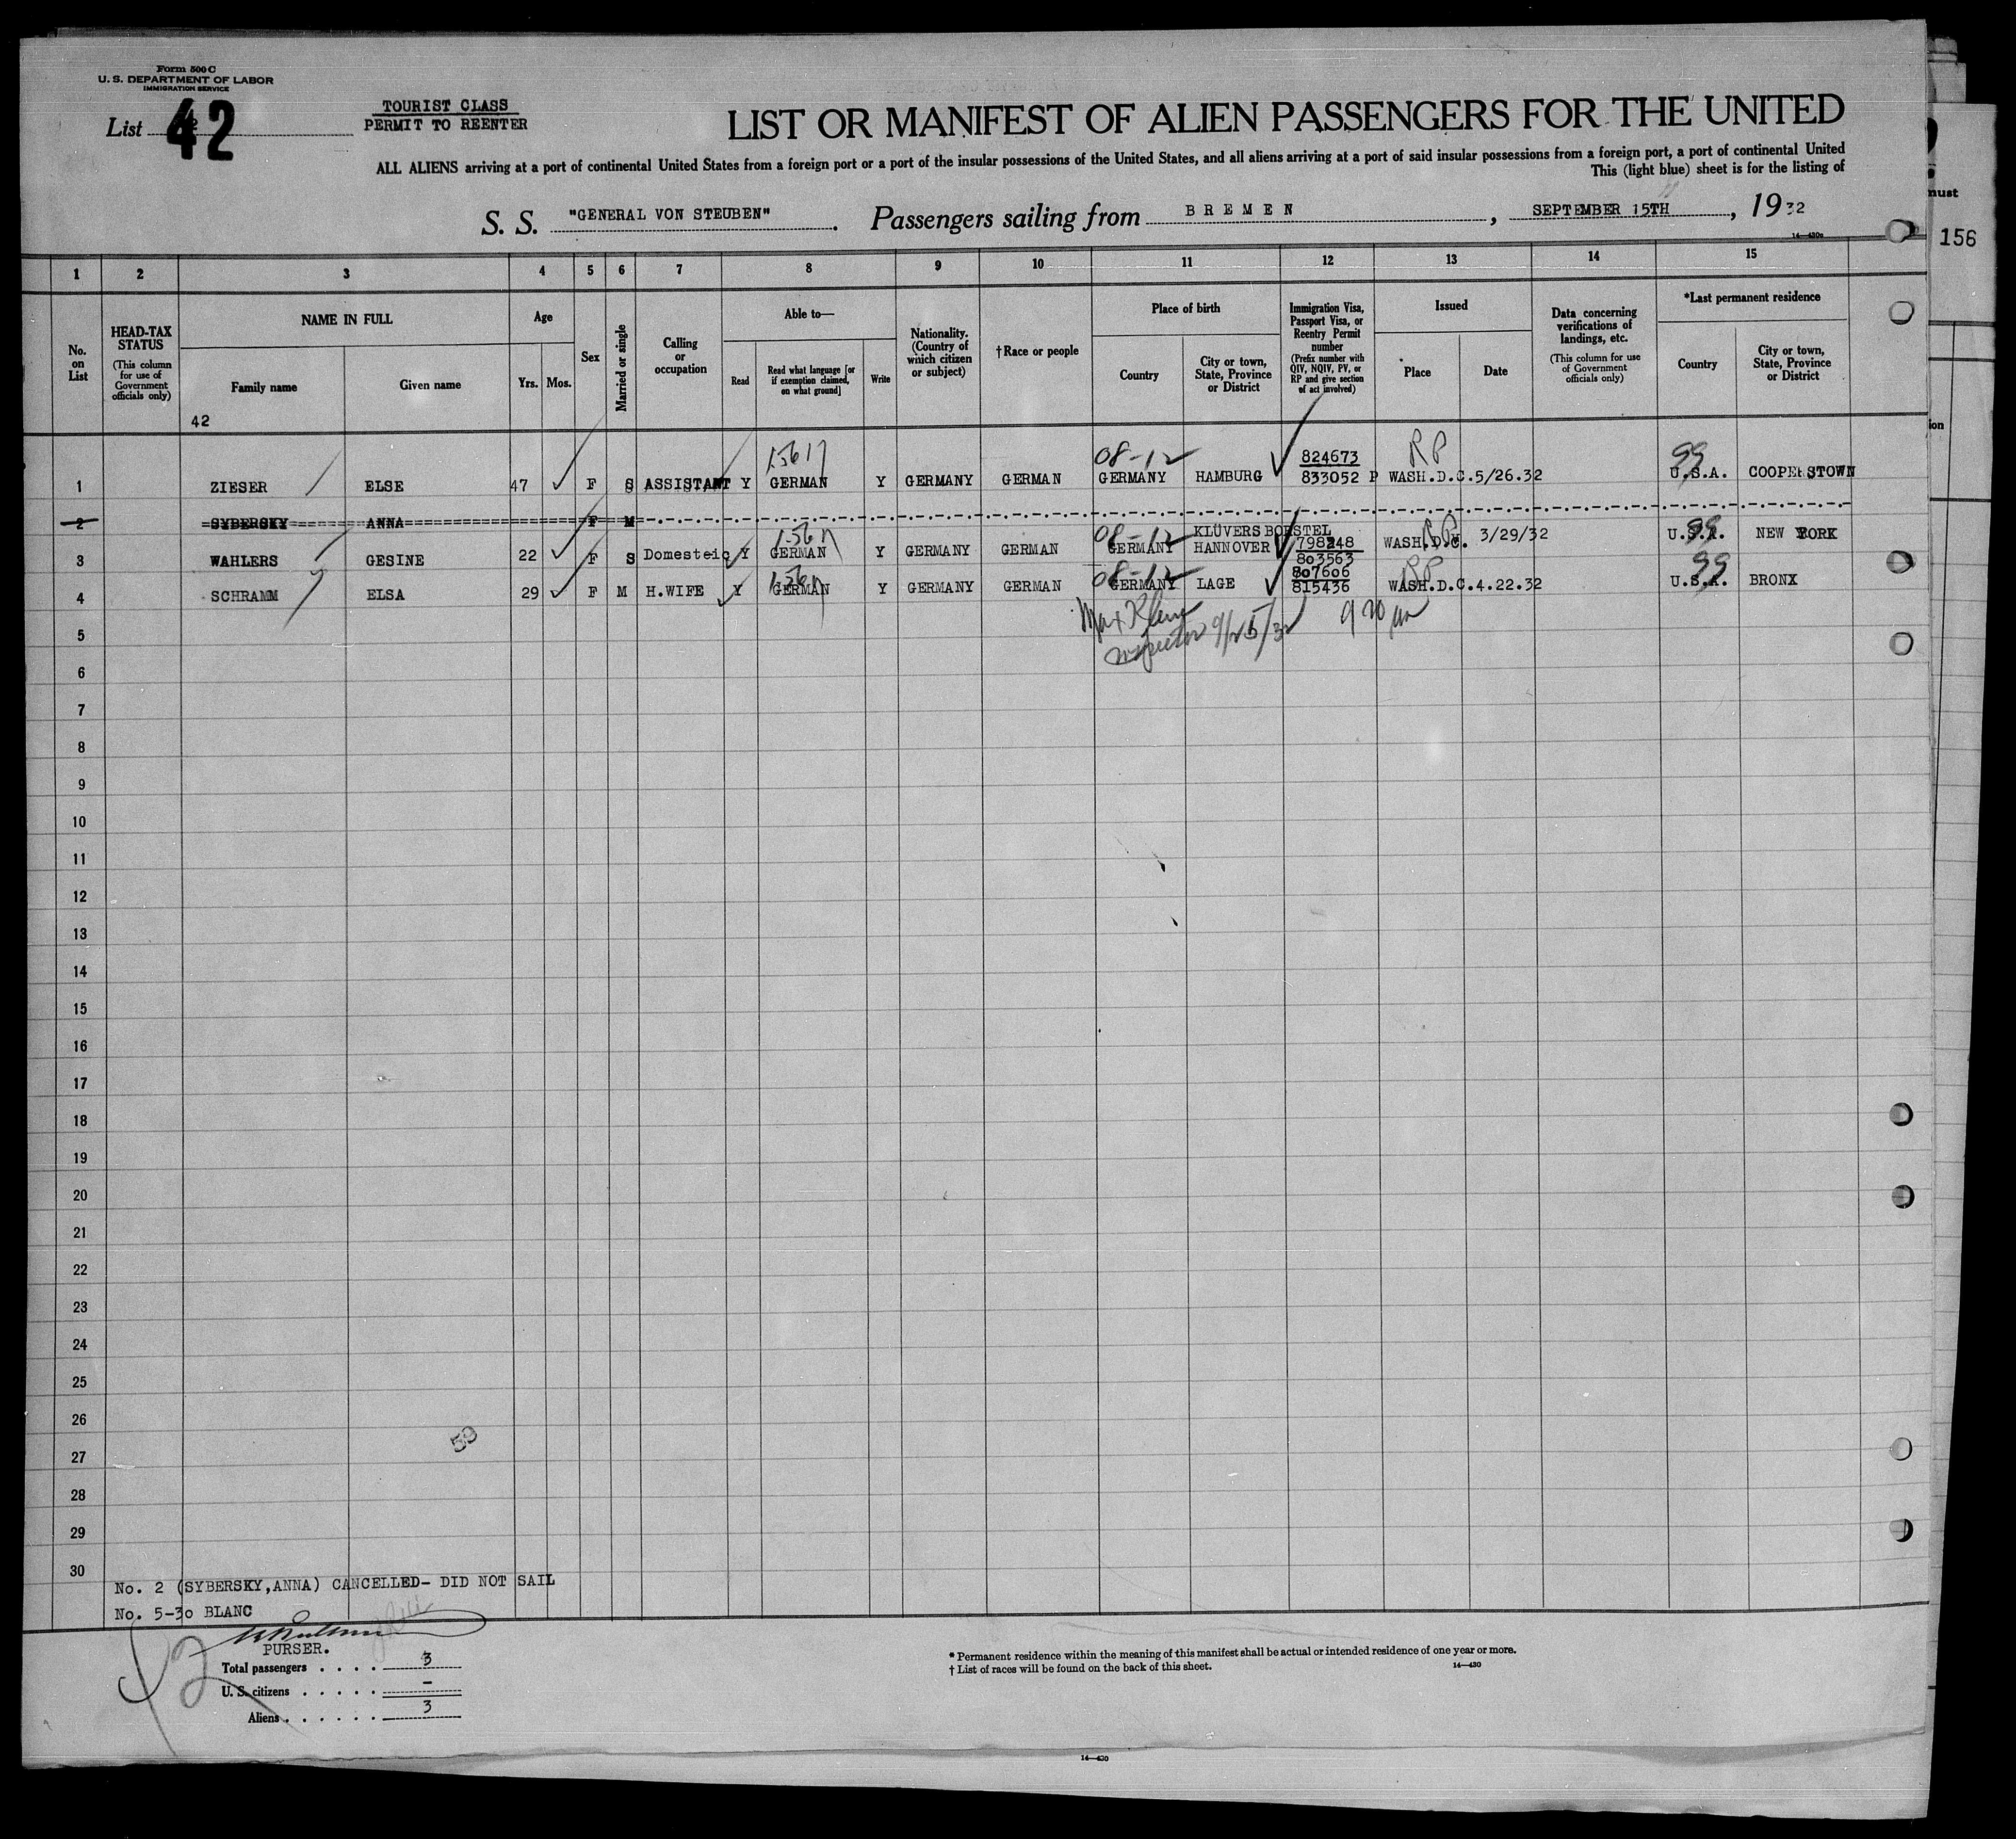 Form 500 C
U. S. DEPARTMENT OF LABOR
IMMIGRATION SERVICE
List 42
TOURIST CLASS
PERMIT TO REENTER
LIST OR MANIFEST OF ALIEN PASSENGERS FOR THE UNITED
ALL ALIENS arriving at a port of continental United States from a foreign port or a port of the insular possessions of the United States, and all aliens arriving at a port of said insular possessions from a foreign port, a port of continental United
This (light blue) sheet is for the listing of
must
S. S. "GENERAL VON STEUBEN". Passengers sailing from BREMEN, SEPTEMBER 15TH, 1932
14—430a
156
1 2 3 4 5 6 7 8 9 10 11 12 13 14 15
No. on List
HEAD-TAX STATUS
(This column for use of Government officials only)
NAME IN FULL
Family name
Given name
Age
Yrs. Mos.
Sex
Married or single
Calling or occupation
Able to—
Read
Read what language [or if exemption claimed, on what ground]
Write
Nationality. (Country of which citizen or subject)
†Race or people
Place of birth
Country
City or town, State, Province or District
Immigration Visa, Passport Visa, or Reentry Permit number
(Prefix number with QIV, NQIV, PV, or RP and give section of act involved)
Issued
Place
Date
Data concerning verifications of landings, etc.
(This column for use of Government officials only)
*Last permanent residence
Country
City or town, State, Province or District
42
ion
08-12 824673 RP 99
1 ZIESER ELSE 47 F S ASSISTANT Y GERMAN Y GERMANY GERMAN GERMANY HAMBURG 833052 P WASH.D.C. 5/26.32 U.S.A. COOPERSTOWN
2 SYBERSKY ANNA F M
08-12 KLÜVERS BORSTEL RP 99
3 WAHLERS GESINE 22 F S Domesteic Y GERMAN Y GERMANY GERMAN GERMANY HANNOVER 798248 WASH.D.C. 3/29/32 U.S.A. NEW YORK
803563
08-12 807606 RP 99
4 SCHRAMM ELSA 29 F M H.WIFE Y GERMAN Y GERMANY GERMAN GERMANY LAGE 815436 WASH.D.C. 4.22.32 U.S.A. BRONX
Max Klein 920 am
5
inspector 9/25/32
6
7
8
9
10
11
12
13
14
15
16
17
18
19
20
21
22
23
24
25
26
59
27
28
29
30
No. 2 (SYBERSKY,ANNA) CANCELLED- DID NOT SAIL
No. 5-30 BLANC
PURSER.
Total passengers . . . . 3
U. S. citizens . . . . . -
Aliens . . . . . . 3
* Permanent residence within the meaning of this manifest shall be actual or intended residence of one year or more.
† List of races will be found on the back of this sheet.
14—430
14—430